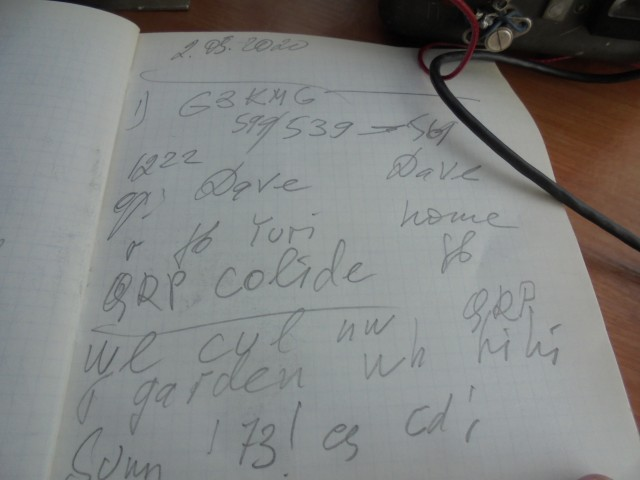 2.05.2020
1) G3KMG
599/539 — 569
1222
op: Dave Dave
r fb Yuri home
fb
QRP colide
QRP
wl cul nw
garden wh hihi
Sunn ! 73! es